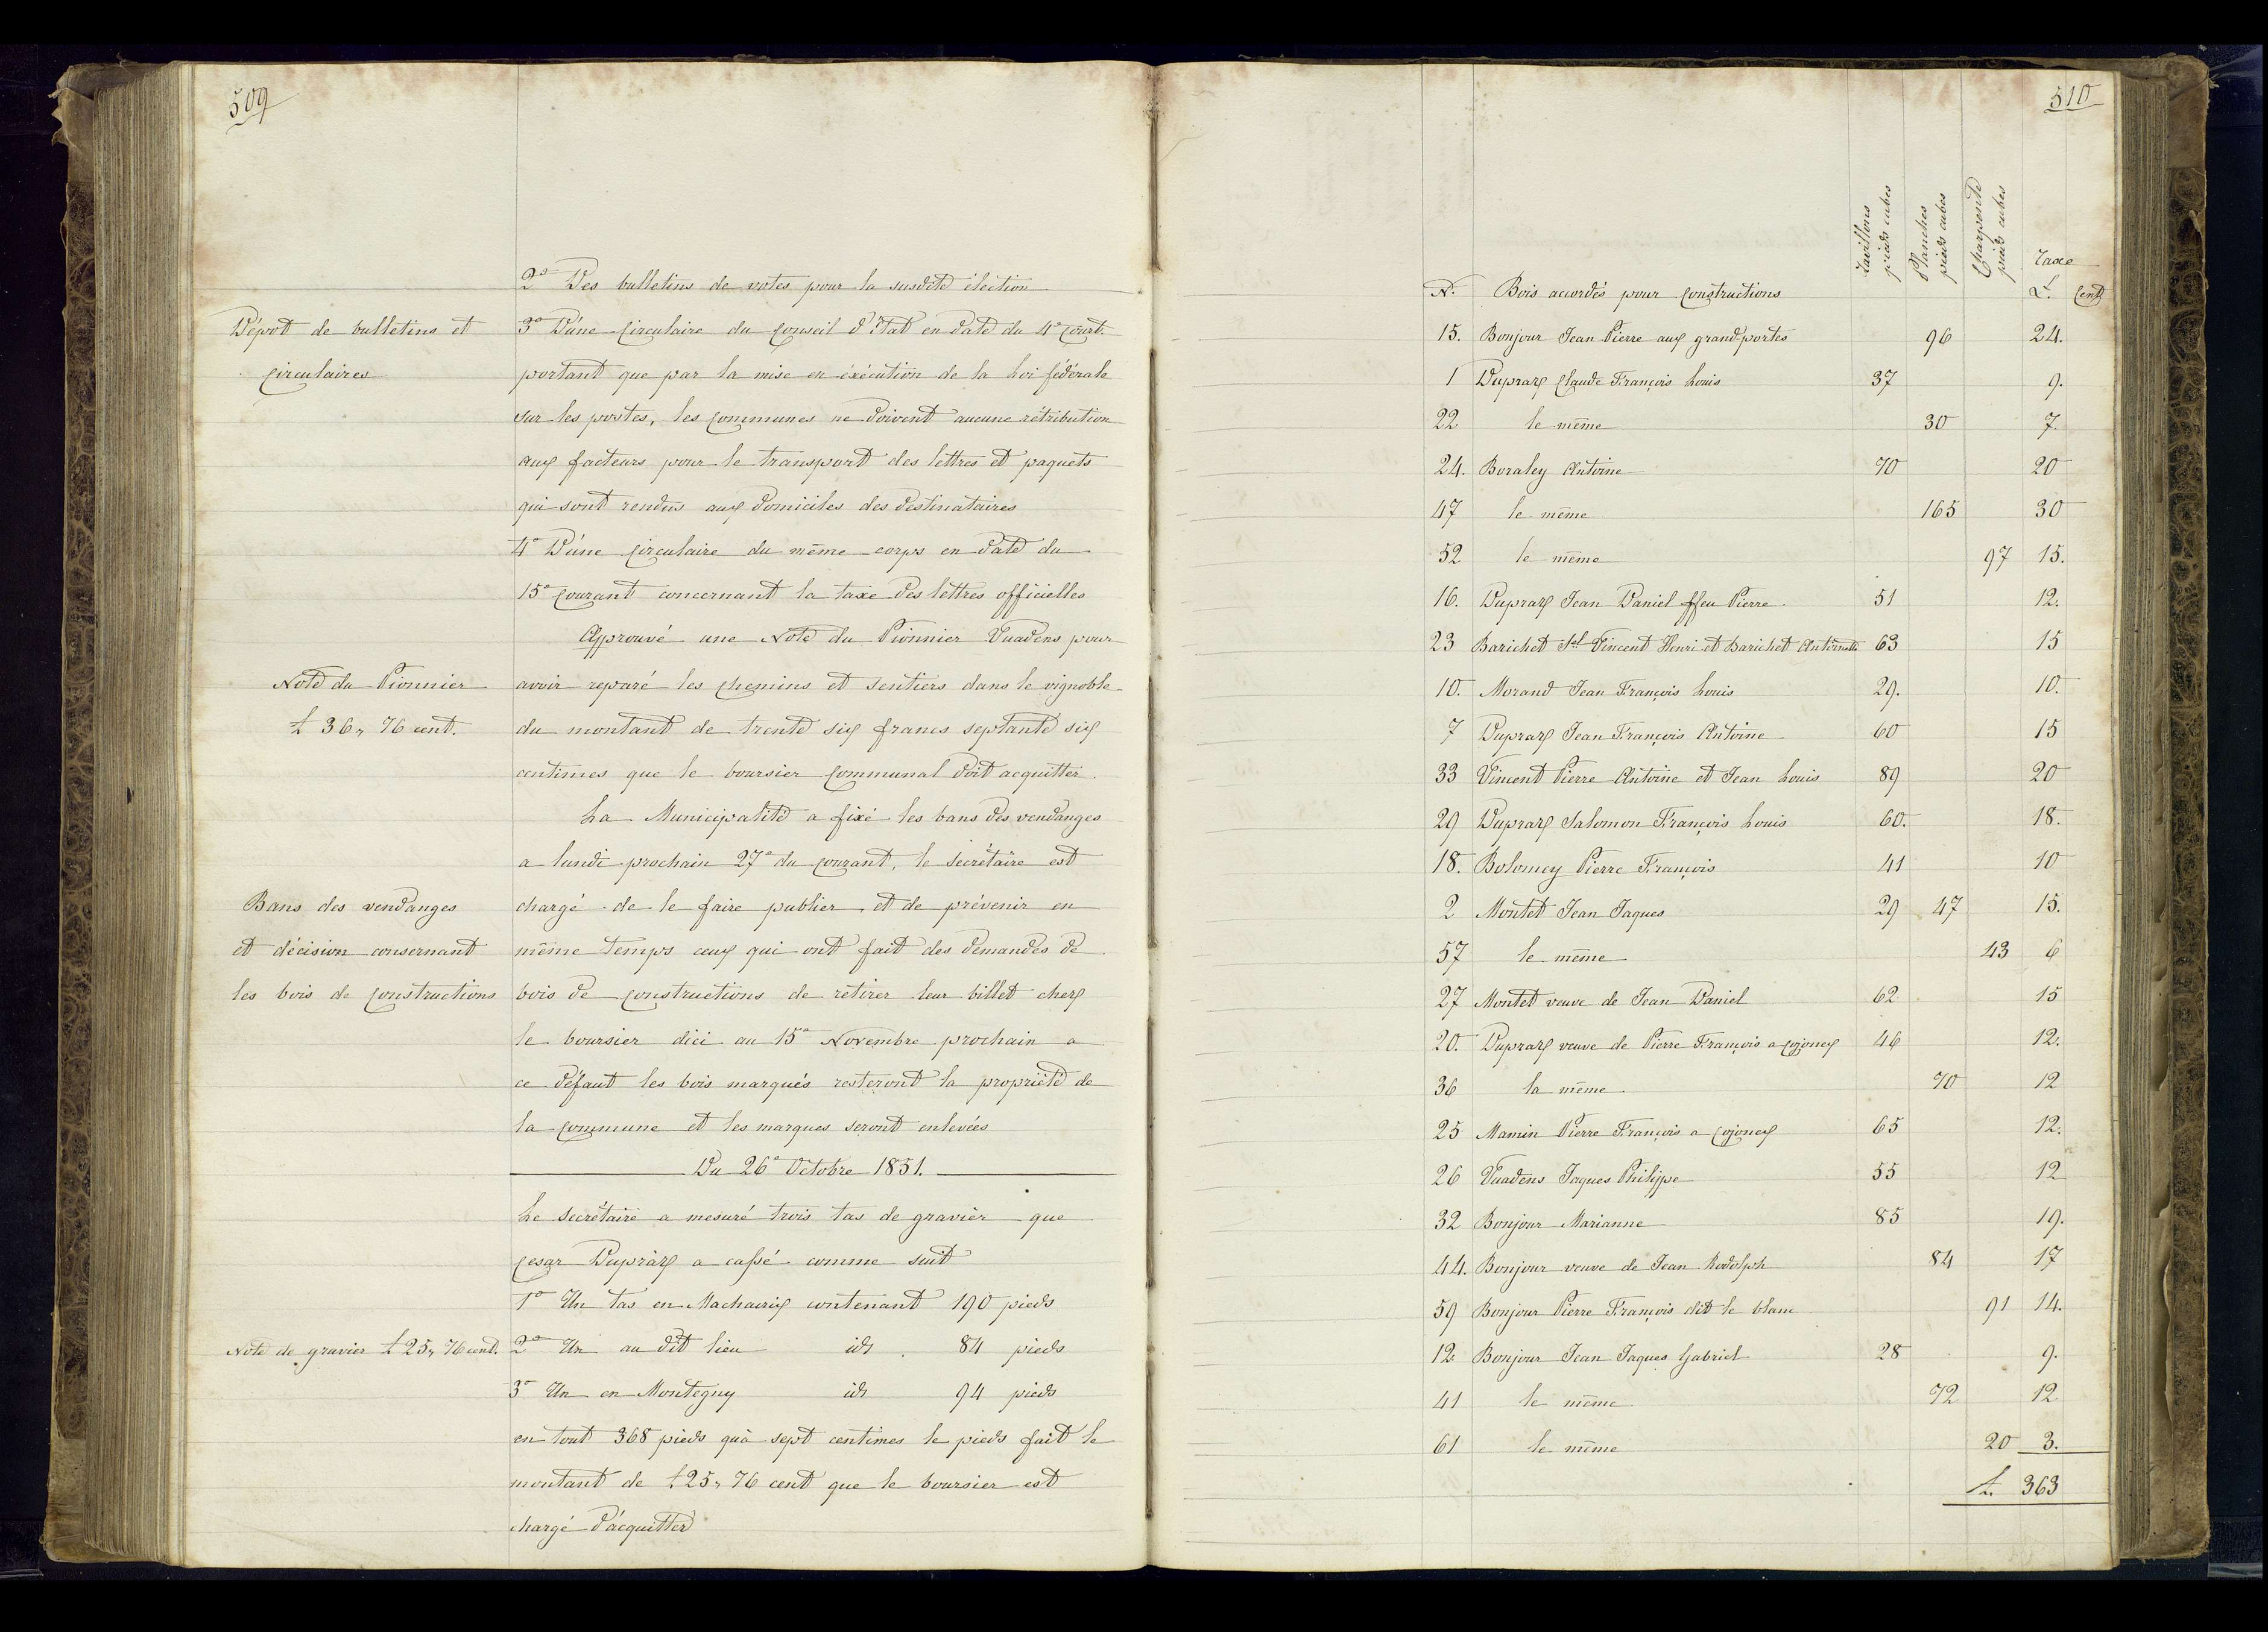 509
2° Des bulletins de votes pour la susdite élection
Dépot de bulletins et
circulaires
3° D'une Circulaire du Conseil d'Etat en date du 4e Court.
portant que par la mise en éxécution de la Loi fédérale
sur les postes, les Communes ne doivent aucune rétribution
aux facteurs pour le transport des lettres et paquets
qui sont rendus aux domiciles des destinataires
4° D'une Circulaire du même corps en date du
15e Courant concernant la taxe des lettres officielles
Approuvé une Note du Pionnier Vuadens pour
Note du Pionnier
£ 36, 76 cent.
avoir reparé les chemins et sentiers dans le vignoble
du montant de trente six francs septante six
centimes que le boursier Communal doit acquitter.
La Municipalité a fixé les bans des vendanges
a lundi prochain 27e du Courant, le secrétaire est
Bans des vendanges
et décision consernant
les bois de Constructions
chargé de le faire publier, et de prévenir en
même temps ceux qui ont fait des demandes de
bois de Constructions de rétirer leur billet chez
le boursier dici au 15e Novembre prochain a
ce défaut les bois marqués resteront la propriété de
la Commune et les marques seront enlevées
Du 26e Octobre 1851.
Le Secrétaire a mesuré trois tas de gravier que
Cesar Duprâz a cassé comme suit
1° Un tas en Machairix contenant 190 pieds
Note de gravier £ 25, 76 cent.
2° Un au dit lieu ids 84 pieds
3° Un en Montegny ids 94 pieds
en tout 368 pieds qu'à sept centimes le pieds fait le
montant de £ 25, 76 cent que le boursier est
chargé d'acquitter
510
Tavillons pieds cubes
Planches pieds cubes
Charpente pieds cubes
Taxe
N° Bois accordés pour Constructions £. Cent
15. Bonjour Jean Pierre aux grand-portes 96 24.
1 Dupraz Claude François Louis 37 9.
22 le même 30 7.
24. Boraley Antoine 70 20
47 le même 165 30
52 le même 97 15.
16. Dupraz Jean Daniel ffeu Pierre. 51 12.
23 Barichet Sel Vincent Henri et Barichet Antoinette 63 15
10. Morand Jean François Louis 29. 10.
7 Dupraz Jean François Antoine 60 15
33 Vincent Pierre Antoine et Jean Louis 89 20
29 Dupraz Salomon François Louis 60. 18.
18. Bolomey Pierre François 41 10
2 Montet Jean Jaques 29 47 15.
57 le même 43 6
27 Montet veuve de Jean Daniel 62 15
20. Dupraz veuve de Pierre François a Cojonex 46 12.
36 la même 70 12
25 Mamin Pierre François a Cojonex 65 12.
26 Vuadens Jaques Philippe 55 12
32 Bonjour Marianne 85 19.
44. Bonjour veuve de Jean Rodolph 84 17
59 Bonjour Pierre François dit le blanc 91 14.
12 Bonjour Jean Jaques Gabriel 28 9.
41 le même 72 12
61 le même 20 3.
£. 363